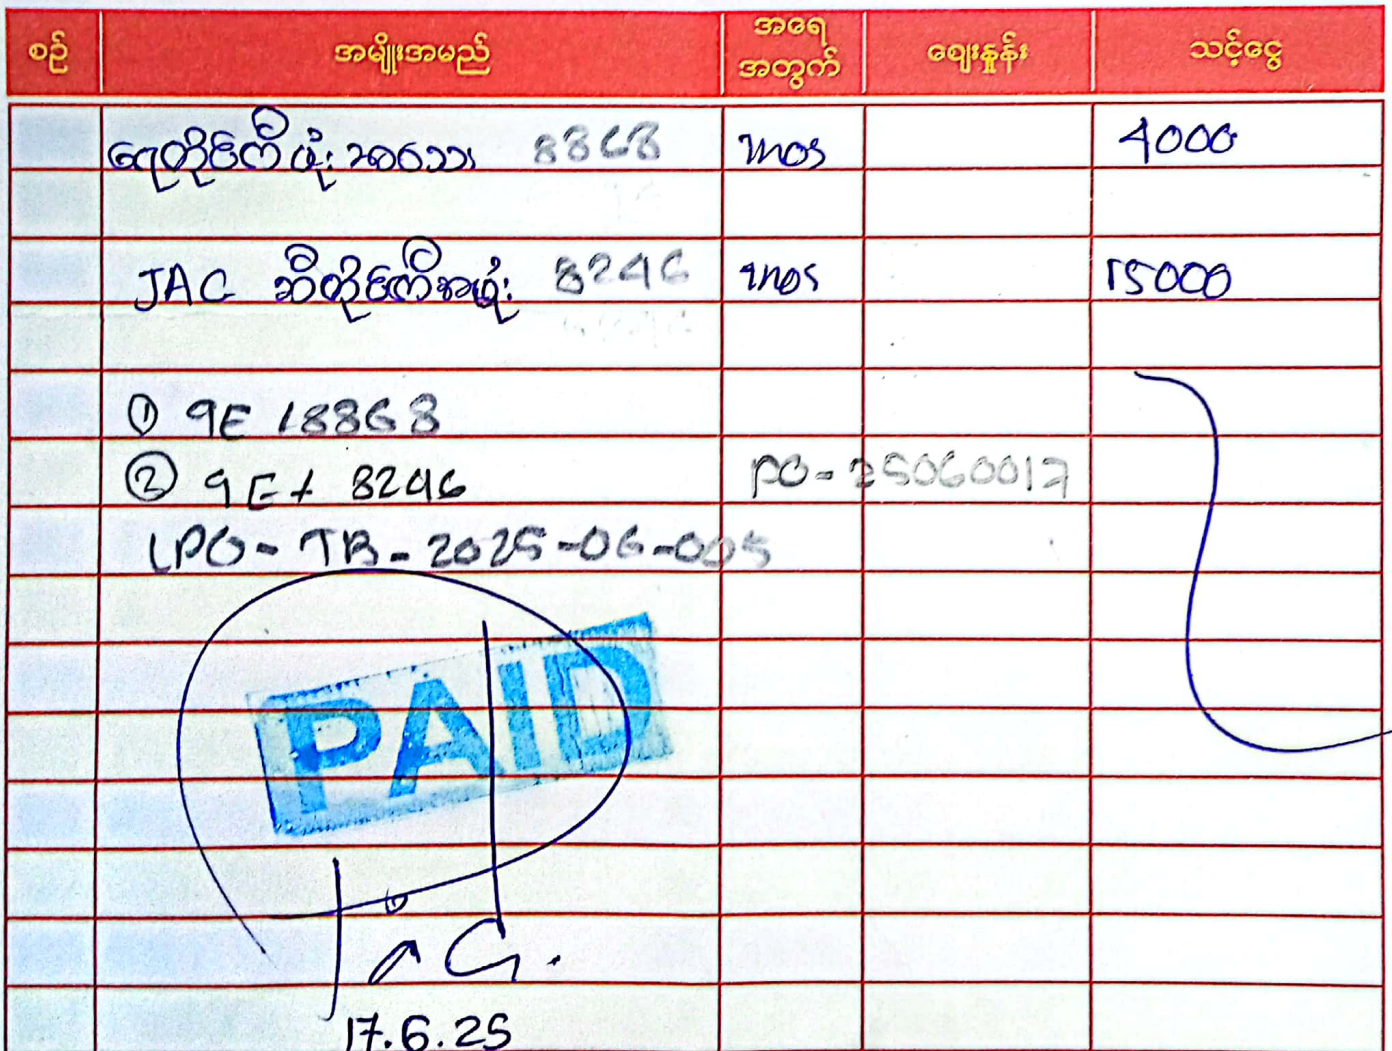 စဉ် အမျိုးအမည် အရေအတွက် ဈေးနှုန်း သင့်ငွေ
ရေတိုင်ကီဖုံး အသေး 8868 1ကာ 4000
JAC ဆီတိုင်ကီအဖုံး 8246 1ကာ 15000
① 9E / 8868
② 9E / 8246 PO-25060017
LPO-TB-2025-06-005
PAID
17.6.25